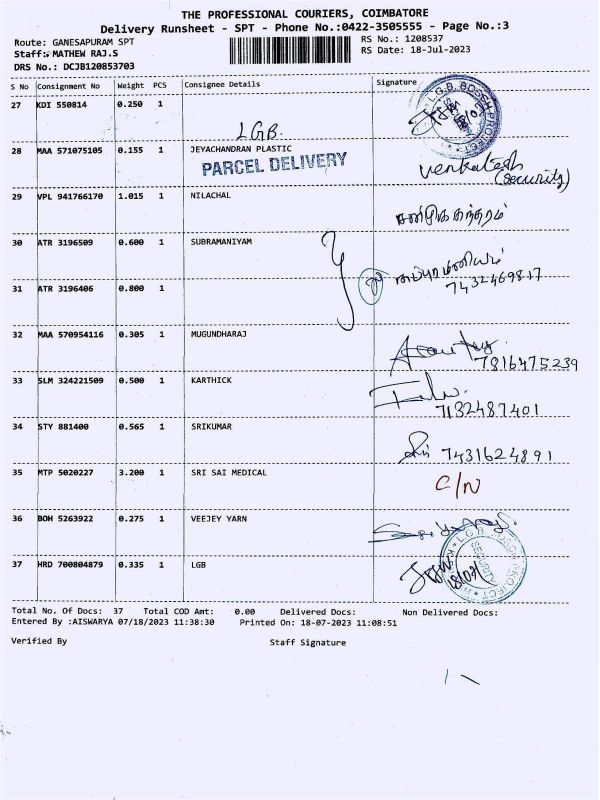 THE PROFESSIONAL COURIERS, COIMBATORE
Delivery Runsheet - SPT - Phone No.:0422-3505555 - Page No.:3
Route: GANESAPURAM SPT
RS No.: 1208537
Staff: MATHEW RAJ.S
RS Date: 18-Jul-2023
DRS No.: DCJB120853703
S No Consignment No Weight PCS Consignee Details Signature
27 KDI 550814 0.250 1
LGB.
28 MAA 571075105 0.155 1 JEYACHANDRAN PLASTIC
PARCEL DELIVERY
venkatesh
(security)
29 VPL 941766170 1.015 1 NILACHAL
30 ATR 3196509 0.600 1 SUBRAMANIYAM
சுப்ரமணியம்
7432469817
31 ATR 3196406 0.800 1
32 MAA 570954116 0.305 1 MUGUNDHARAJ
7816475239
33 SLM 324221509 0.500 1 KARTHICK
7132487401
34 STY 881400 0.565 1 SRIKUMAR
7431624891
35 MTP 5020227 3.200 1 SRI SAI MEDICAL
C/N
36 BOH 5263922 0.275 1 VEEJEY YARN
37 HRD 700804879 0.335 1 LGB
L.G.B. BOSCH PROJECT
SECURITY
Total No. Of Docs: 37 Total COD Amt: 0.00 Delivered Docs: Non Delivered Docs:
Entered By :AISWARYA 07/18/2023 11:38:30 Printed On: 18-07-2023 11:08:51
Verified By Staff Signature